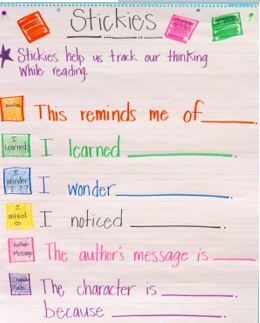 Stickies
Stickies help us track our thinking
while reading.
This reminds me of
I learned
I learned
I wonder ? ? ?
I wonder
I noticed
I noticed
Author's Message
The author's message is
The character is
because